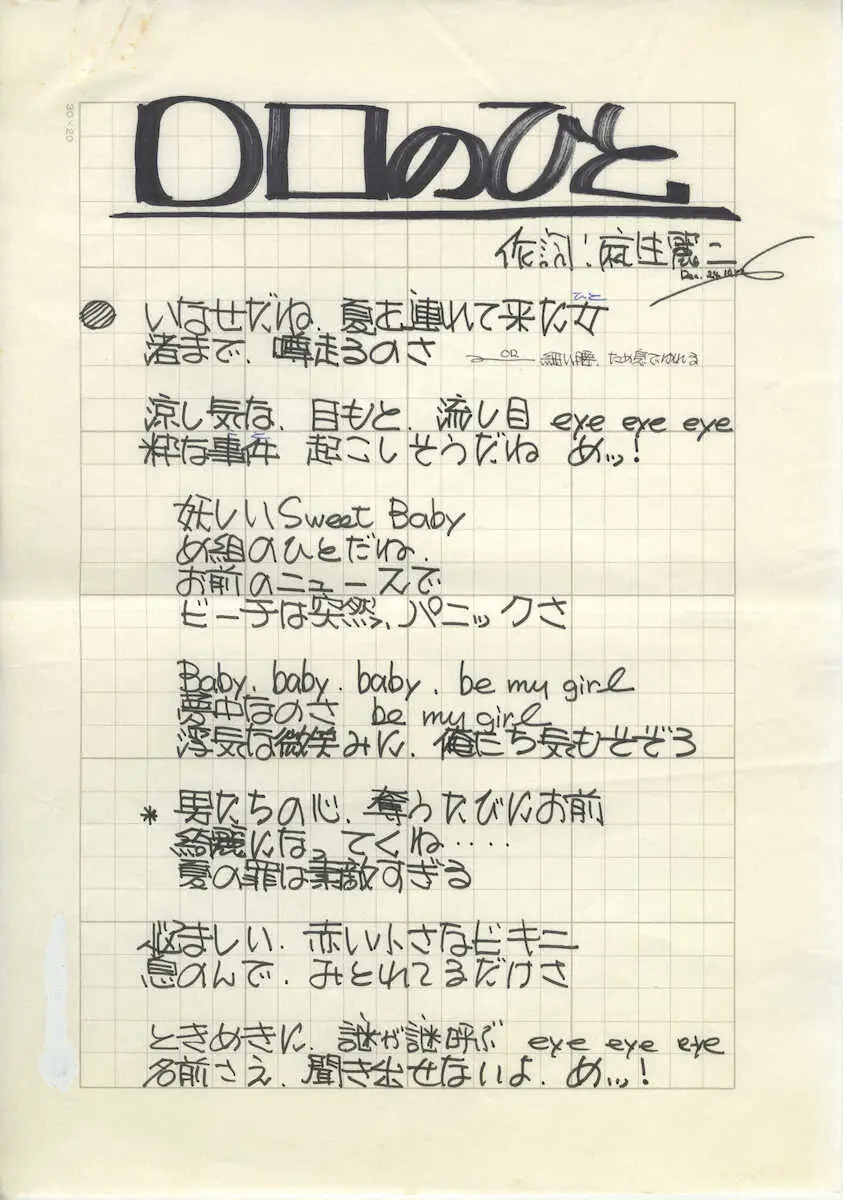 30×20
口口のひと
作詞：麻生麗二
Dec. 26.
いなせだね、夏を連れて来た女
ひと
渚まで、噂走るのさ
OR 細い腰、ため息でゆれる
涼し気な、目もと、流し目 eye eye eye
粋な事件 起こしそうだね めッ!
妖しいSweet Baby
め組のひとだね、
お前のニュースで
ビーチは突然、パニックさ
Baby, baby, baby, be my girl
夢中なのさ be my girl
浮気な微笑みに、俺たち気もそぞろ
* 男たちの心、奪うたびにお前
綺麗になってくね‥‥
夏の罪は素敵すぎる
悩ましい、赤い小さなビキニ
息のんで、みとれてるだけさ
ときめきに、謎が謎呼ぶ eye eye eye
名前さえ、聞き出せないよ、めッ!